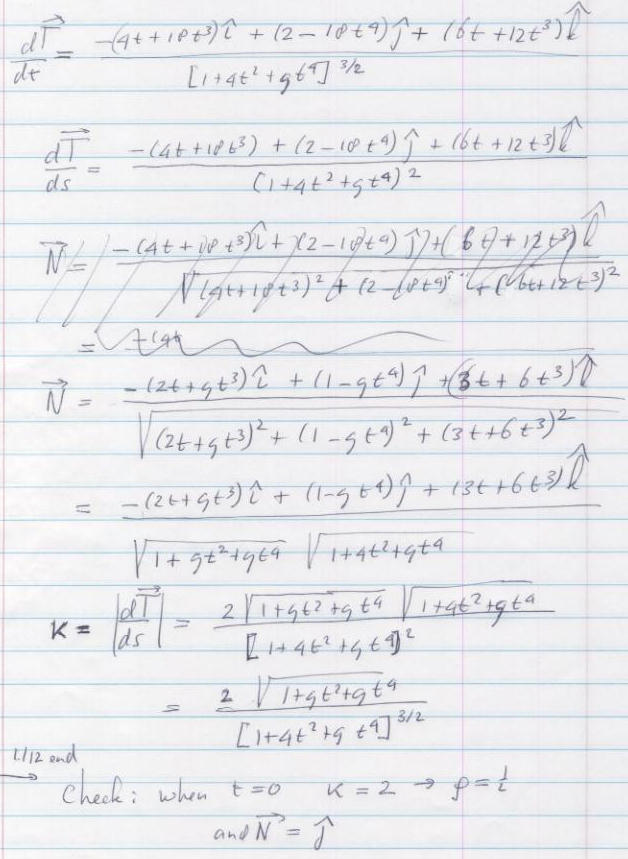 dT/dt = -(4t+18t³)î + (2-18t⁴)ĵ + (6t+12t³)k̂ / [1+4t²+9t⁴]^3/2
dT/ds = -(4t+18t³) + (2-18t⁴)ĵ + (6t+12t³)k̂ / (1+4t²+9t⁴)²
N = -(4t+18t³)î + (2-18t⁴)ĵ + (6t+12t³)k̂ / √(4t+18t³)² + (2-18t⁴)² + (6t+12t³)²
=
N = -(2t+9t³)î + (1-9t⁴)ĵ + (3t+6t³)k̂ / √(2t+9t³)² + (1-9t⁴)² + (3t+6t³)²
= -(2t+9t³)î + (1-9t⁴)ĵ + (3t+6t³)k̂ / √1+9t²+9t⁴ √1+4t²+9t⁴
K = |dT/ds| = 2√1+9t²+9t⁴ √1+4t²+9t⁴ / [1+4t²+9t⁴]²
= 2√1+9t²+9t⁴ / [1+4t²+9t⁴]^3/2
1/12 end
→ Check: when t=0 K=2 → ρ=½
and N = ĵ